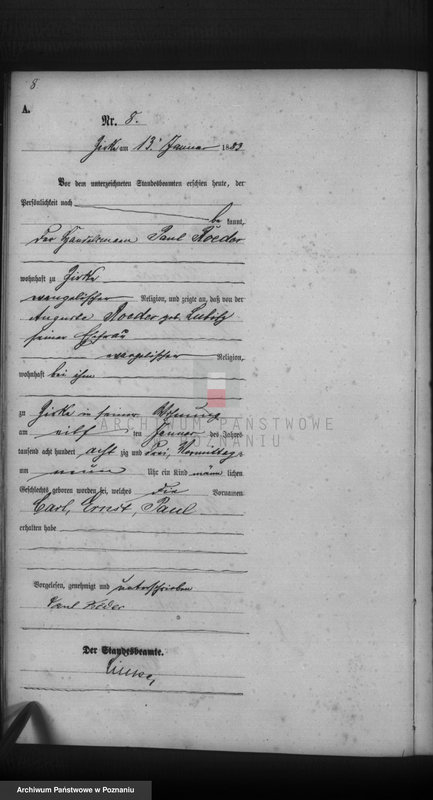 8
A.
Nr. 8.
Zirke am 13. Januar 1883
Vor dem unterzeichneten Standesbeamten erschien heute, der
Persönlichkeit nach
be kannt,
der Handelsmann Paul Roeder
wohnhaft zu Zirke
evangelischer Religion, und zeigte an, daß von der
Auguste Roeder geb.
seiner Ehefrau
evangelischer Religion,
wohnhaft bei ihm
zu Zirke in seiner Wohnung
am eilf ten Januar des Jahres
tausend acht hundert acht zig und drei, Vormittags
um neun Uhr ein Kind männ lichen
Geschlechts geboren worden sei, welches die Vornamen
Carl, Ernst, Paul
erhalten habe
Vorgelesen, genehmigt und unterschrieben
Paul Röder
Der Standesbeamte.
ARCHIWUM PAŃSTWOWE
W POZNANIU
Archiwum Państwowe w Poznaniu